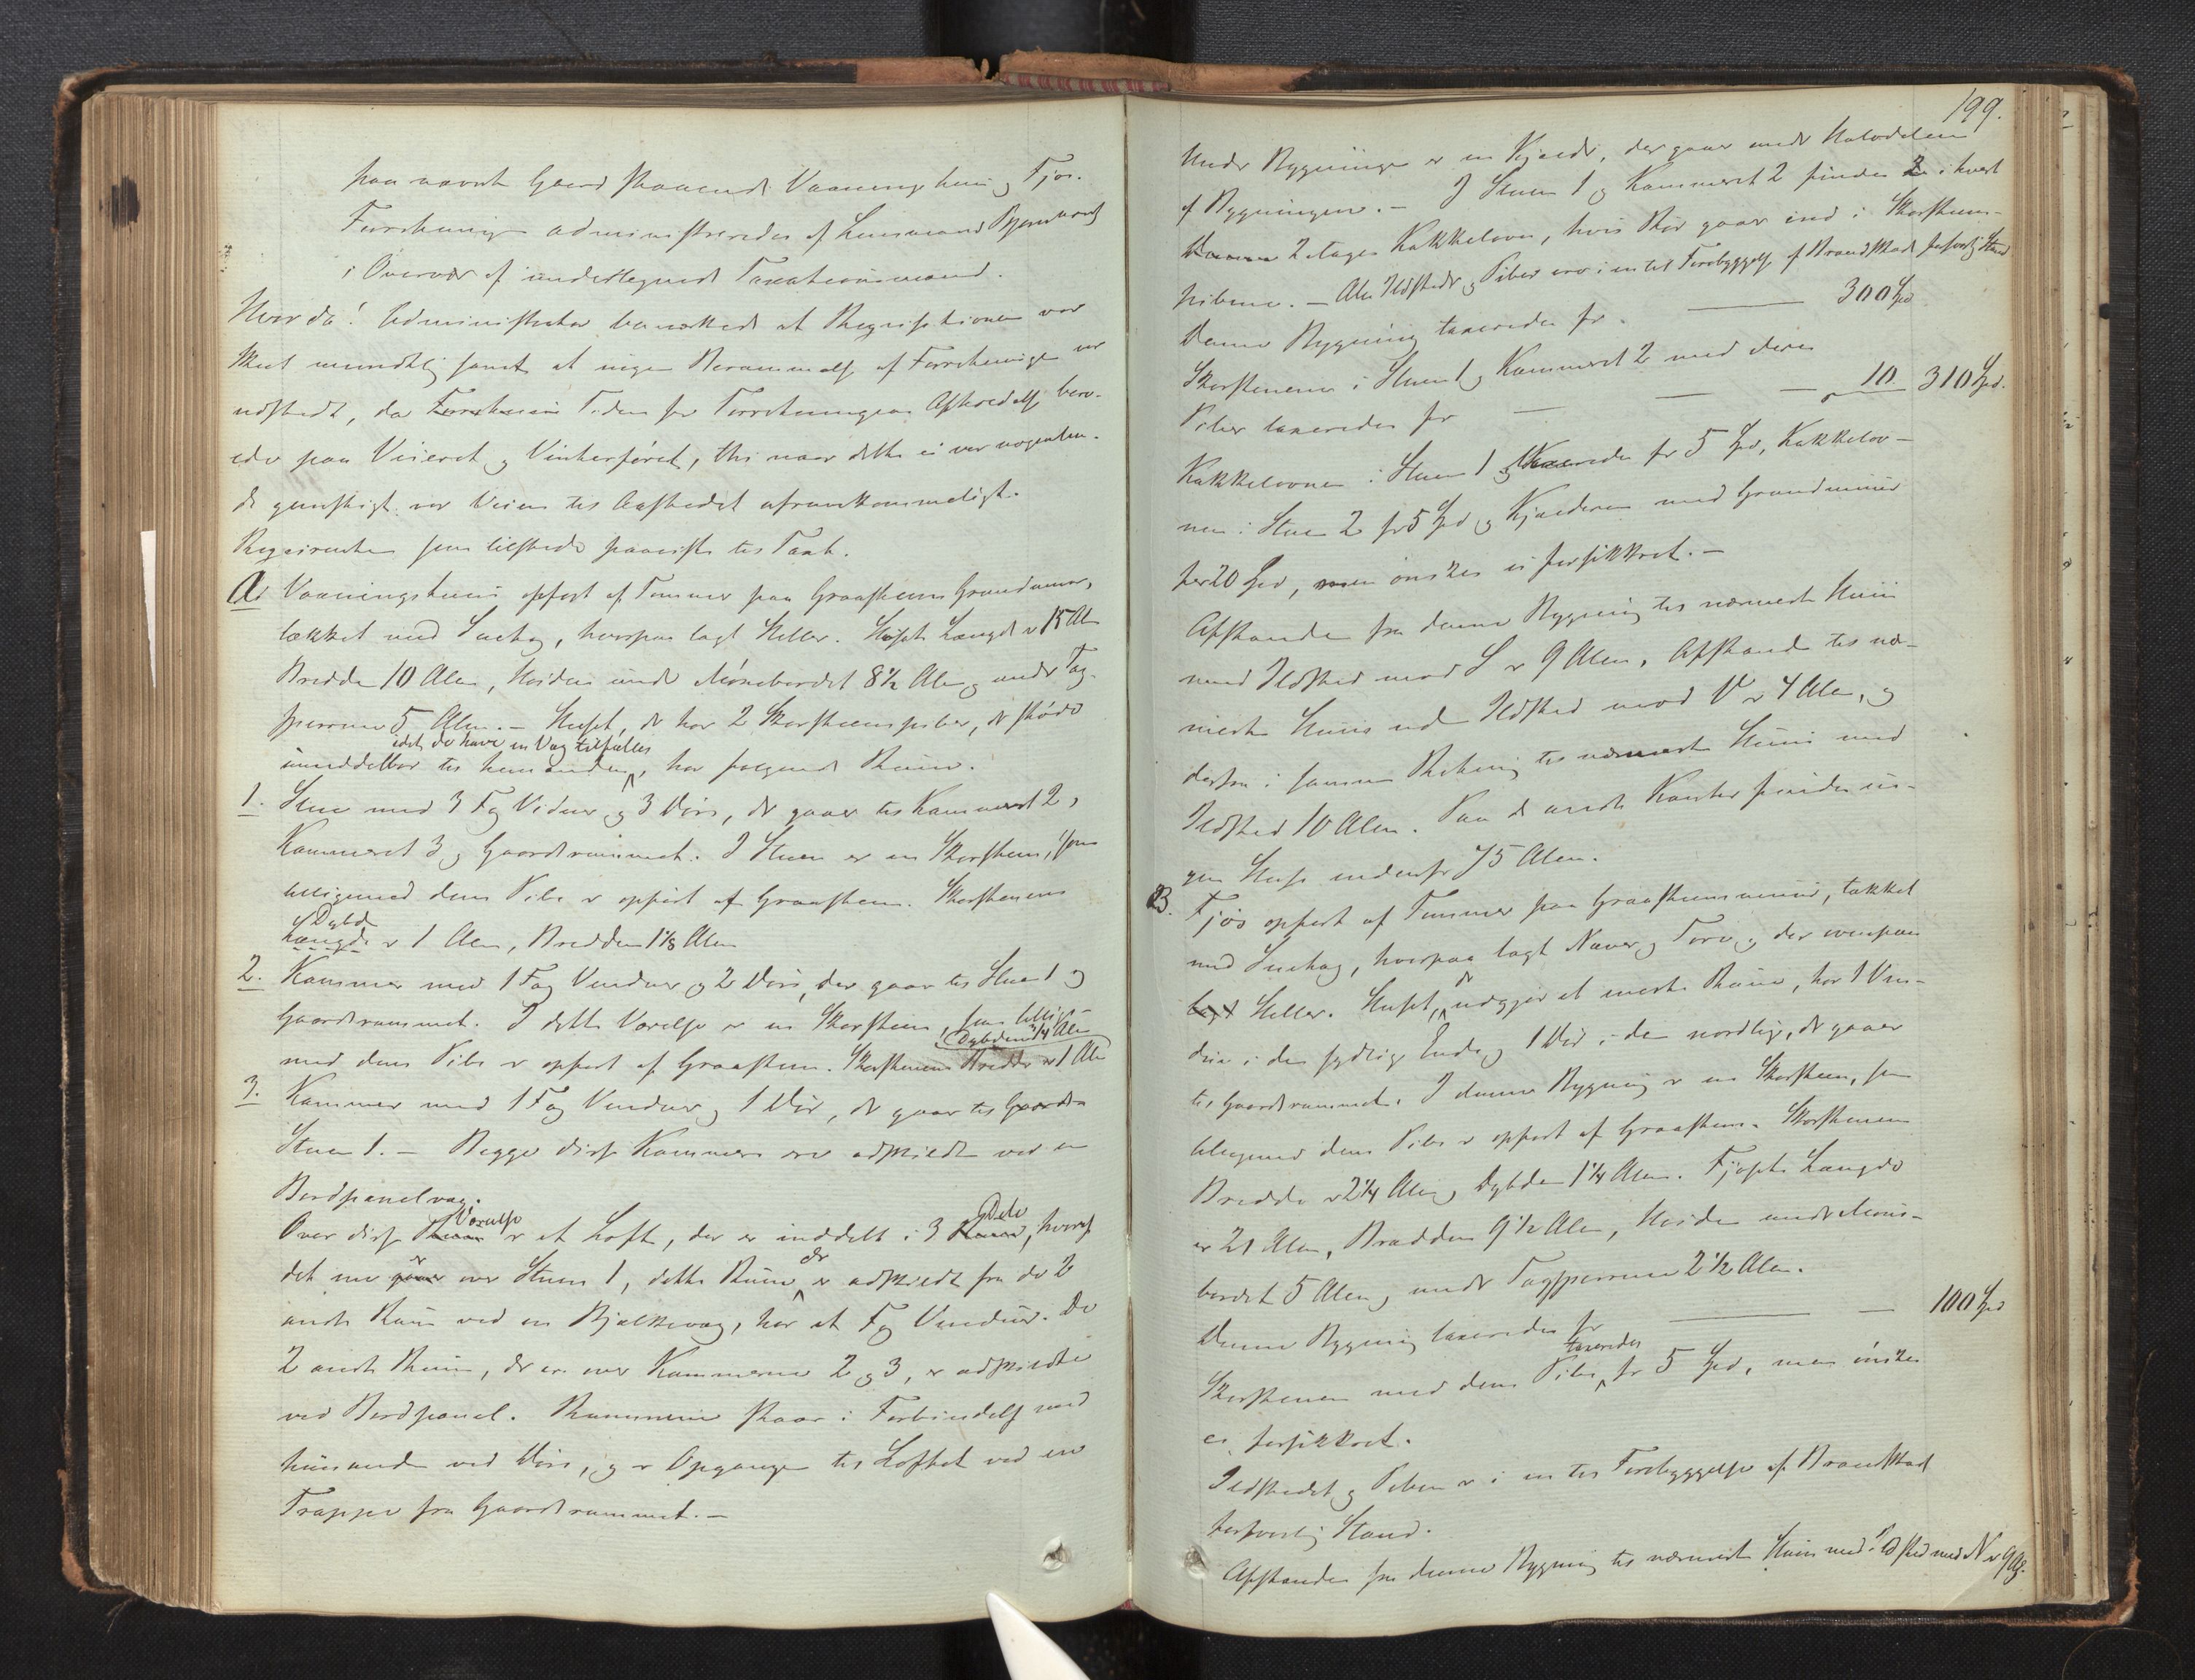 paa nævnte Gaard staaende Vaaningshuus og Fjøs.
Forretningen administreredes af Lensmand
i Overvær af undertegnede Taxationsmænd.
Hvorda! Administrator bemærkede at Reqvisitionen var
skeet mundtlig samt at ingen Berammelse af Forretningen var
udstedt, da Tiden for Forretningens Afholdelse bero-
ede paa Veiret og Vinterføret, thi naar dette ei var nogenlun-
de gunstigt var Veien til Aastedet ufremkommeligt.
Reqvirenten som tilstede paaviste til Taxt.
A. Vaaningshuus opført af Tømmer paa Graasteens Grundmuur,
tækket med Sutag, hvorpaa lagt Heller. Husets Længde er 15 Al
Bredde 10 Alen, Høiden under Mønebordet 8½ Alen og under Tag-
sperrene 5 Alen. – Huset, der har 2 Skorsteenspiber, der støde
idet de have en Væg tilfælles
umiddelbar til hinanden, har følgende Rum.
1. Stue med 3 Fag Vinduer og 3 Døre, der gaar til Kammeret 2,
Kammeret 3 og Gaardsrummet. I Stuen er en Skorsteen, som
tilligemed dens Pibe er opført af Graasteen. Skorstenens
Dybde
Længde er 1 Alen, Bredden 1⅛ Alen
2. Kammer med 1 Fag Vinduer og 2 Døre, der gaar til Stuen 1 og
Gaardsrummet. I dette Værelse er en Skorsteen, som tillige-
Dybden 3/4 Alen
med dens Pibe er opført af Graasteen. Skorstenens Bredde er 1 Alen
3. Kammer med 1 Fag Vinduer og 1 Dør, der gaar til
Stuen 1. – Begge disse Kammere ere adskildte ved en
Bordpanelvæg.
Værelse Dele
Over disse Rum er et Loft, der er inddelt i 3 Rum, hvoraf
er der
det ene gaar over Stuen 1, dette Rum, er adskildt fra de 2
andre Rum ved en Bjælkevæg, har et Fag Vinduer. De
2 andre Rum, der er over Kammerne 2 og 3, er adskildte
ved Bordpanel. Rummene staar i Forbindelse med
hinanden ved Døre, og er Opgangen til Loftet ved en
Trappe fra Gaardsrummet. –
199.
Under Bygningen er en Kjælder, der gaar under Halvdelen
af Bygningen. – I Stuen 1 og Kammeret 2 findes i hvert
2 Etages Kakkelovn, hvis Rør gaar ind i Skorsteens-
piberne. – Alle Ildsteder og Piber ere i en til Forebyggelse af Brandskade forsvarlig Stand
Denne Bygning taxeredes for. — 300 Spd
Skorstenene i Stuen 1 og Kammeret 2 med deres
Piber taxeredes for — — — 10 310 Spd.
Kakkelovnen i Stuen 1 taxeredes for 5 Spd, Kakkelov-
nen i Stue 2 for 5 Spd og Kjælderen med Grundmuur
for 20 Spd, men ønskes ei forsikkret. –
Afstanden fra denne Bygning til nærmeste Huus
med Ildsted mod S er 9 Alen, Afstanden til nær-
meste Huus uden Ildsted mod V er 4 Alen, og
derfra i samme Retning til nærmeste Huus med
Ildsted 10 Alen. Paa de andre Kanter findes in-
gen Huse indenfor 75 Alen.
B. Fjøs opført af Tømmer paa Graasteensmuur, tækket
med Sutag, hvorpaa lagt Næver og Torv og der ovenpaa
der
lagt Heller. Huset, udgjør et eneste Rum, har 1 Vin-
due i den sydlige Ende og 1 Dør i den nordlige, der gaaer
til Gaardsrummet. I denne Bygning er en Skorsteen, som
tilligemed dens Pibe er opført af Graasteen. Skorstenens
Bredde er 2¼ Alen, Dybden 1¼ Alen. Fjøsets Længde
er 21 Alen, Bredden 9½ Alen, Høiden under Møns-
bordet 5 Alen og under Tagsperrene 2½ Alen.
Denne Bygning taxeredes for — — 100 Spd
taxeredes
Skorstenen med dens Pibe for 5 Spd, men ønskes
ei forsikkret.
Ildstedet og Piben er i en til Forebyggelse af Brandskade
forsvarlig Stand.
Afstanden fra denne Bygning til nærmeste Huus med Ildsted mod N er 9 Al.